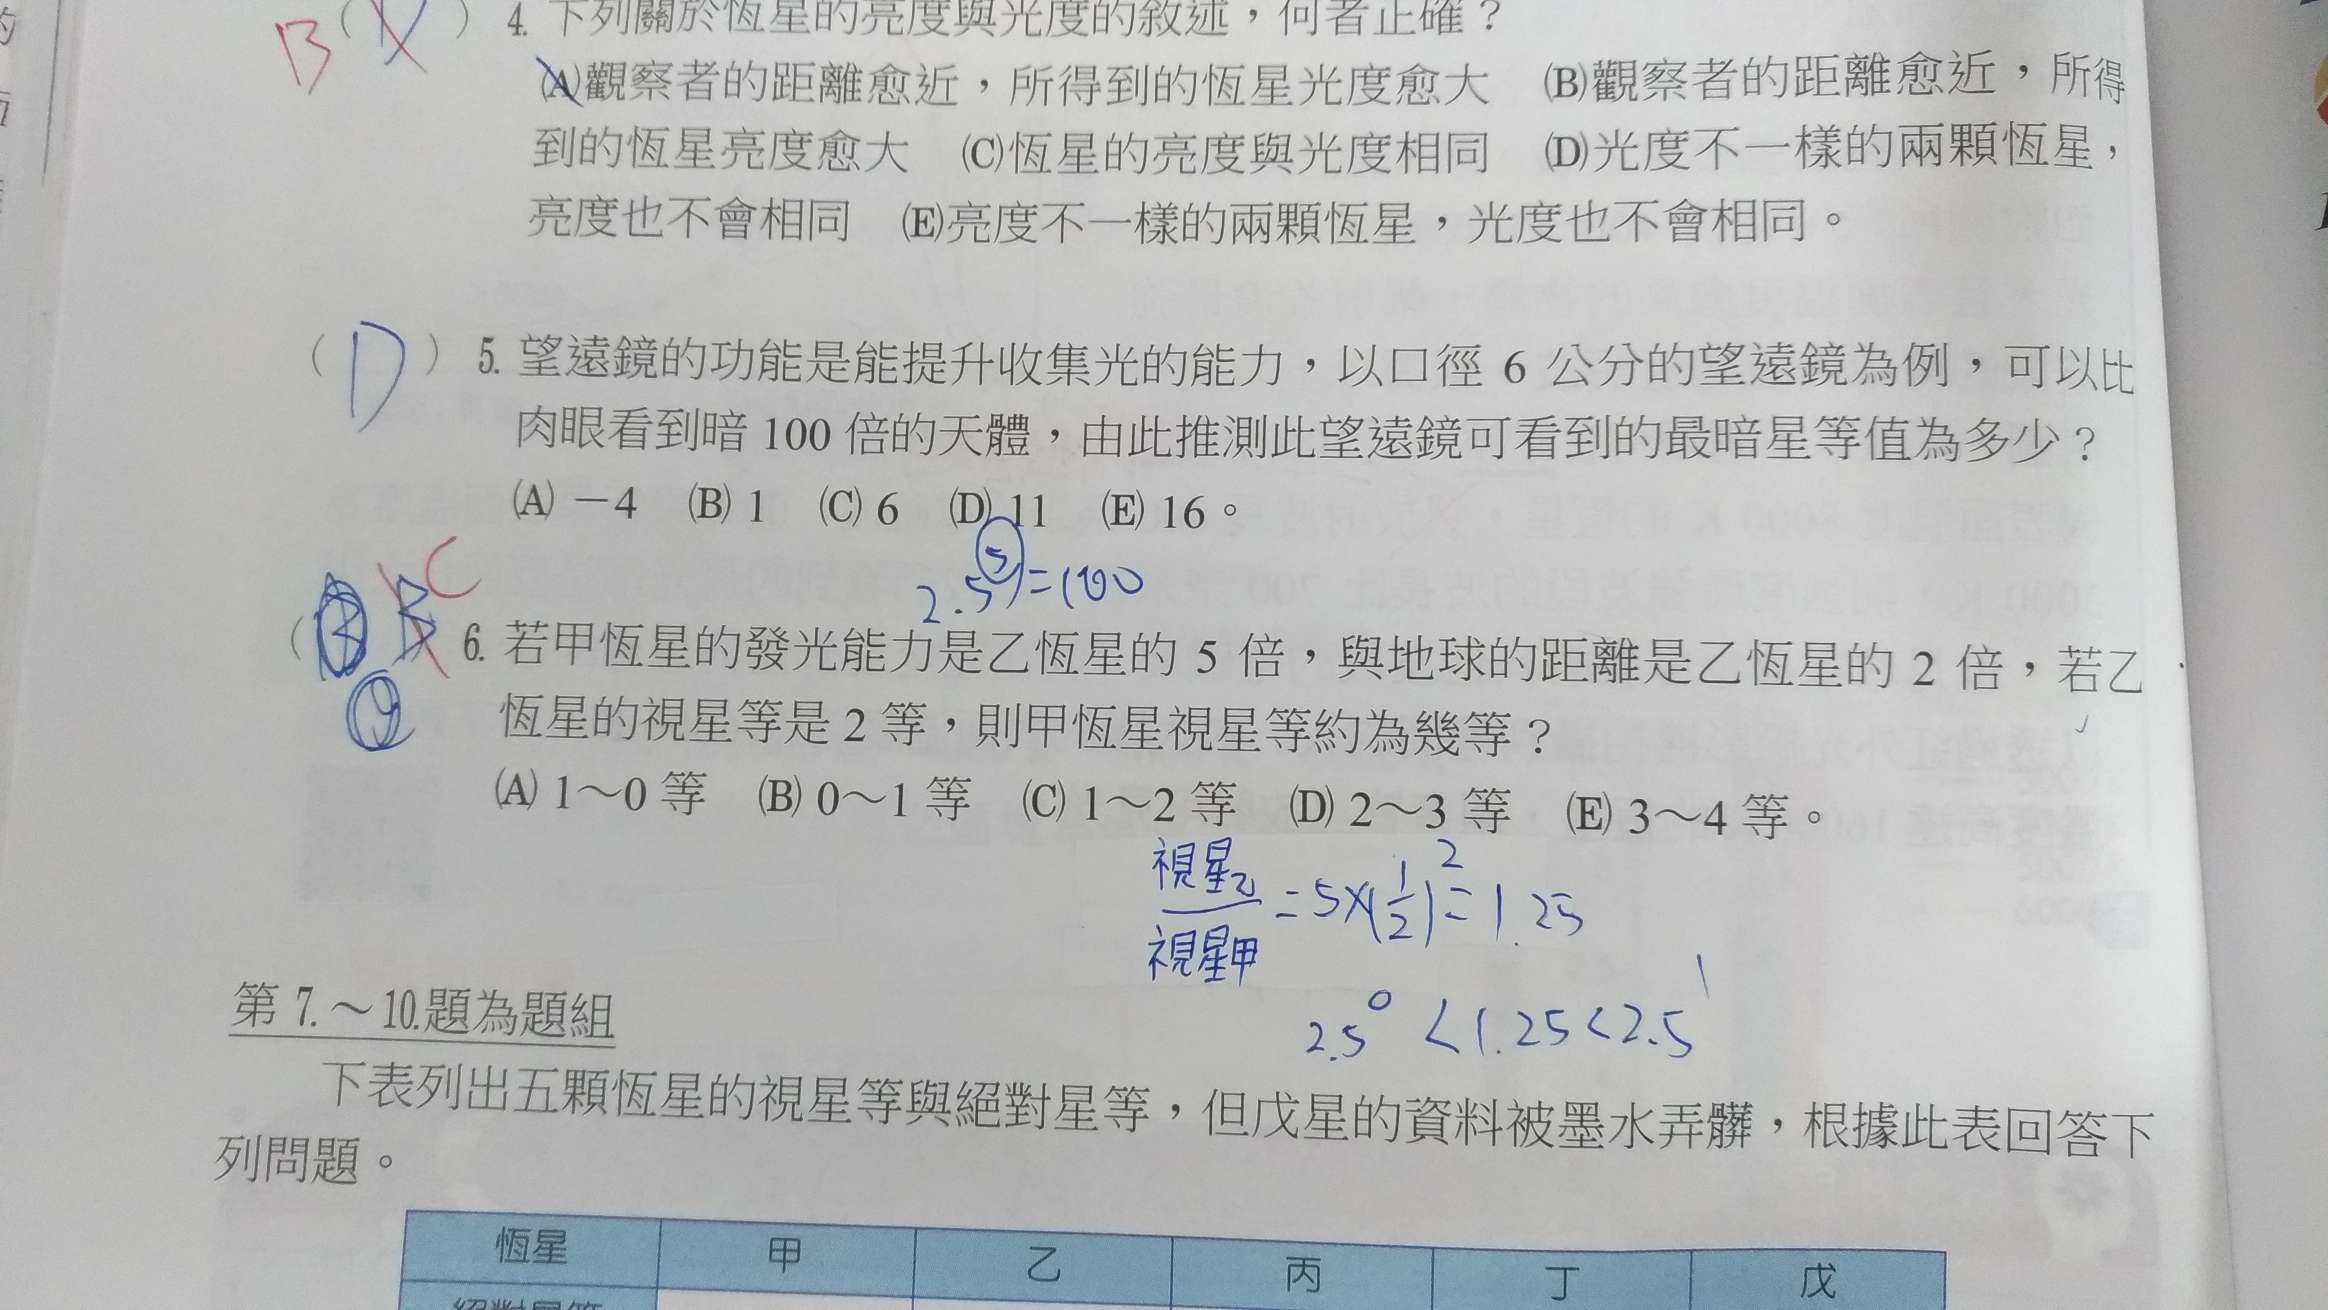 B ( ) 4. 下列關於恆星的亮度與光度的敘述，何者正確？
(A)觀察者的距離愈近，所得到的恆星光度愈大 (B)觀察者的距離愈近，所得
到的恆星亮度愈大 (C)恆星的亮度與光度相同 (D)光度不一樣的兩顆恆星，
亮度也不會相同 (E)亮度不一樣的兩顆恆星，光度也不會相同。
( D ) 5. 望遠鏡的功能是能提升收集光的能力，以口徑 6 公分的望遠鏡為例，可以比
肉眼看到暗 100 倍的天體，由此推測此望遠鏡可看到的最暗星等值為多少？
(A) －4 (B) 1 (C) 6 (D) 11 (E) 16。
2.5^5=100
( B B C 6. 若甲恆星的發光能力是乙恆星的 5 倍，與地球的距離是乙恆星的 2 倍，若乙
恆星的視星等是 2 等，則甲恆星視星等約為幾等？
(A) 1～0 等 (B) 0～1 等 (C) 1～2 等 (D) 2～3 等 (E) 3～4 等。
視星乙/視星甲 = 5×(1/2)^2 = 1.25
2.5^0 < 1.25 < 2.5^1
第 7.～10.題為題組
下表列出五顆恆星的視星等與絕對星等，但戊星的資料被墨水弄髒，根據此表回答下
列問題。
恆星 甲 乙 丙 丁 戊